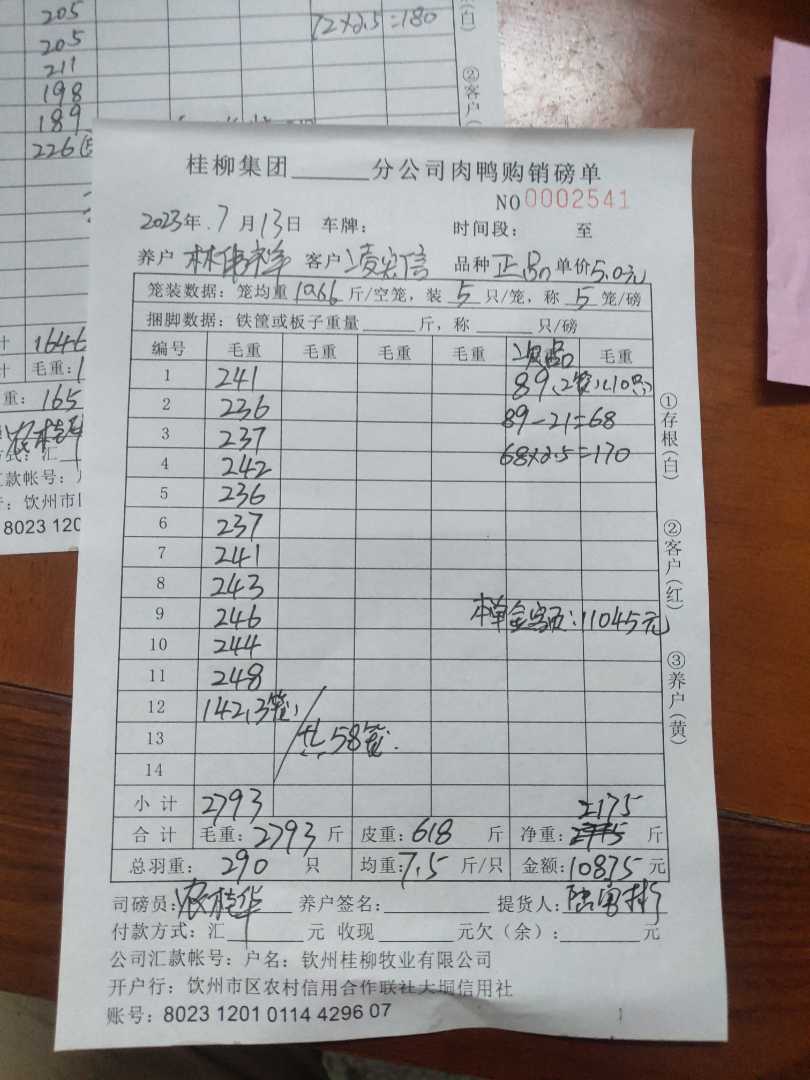 205
205
211
198
189
226
72×2.5=180
(白)
②客户
1646
毛重:1
重: 165
汇
款帐号:
: 饮州市区
8023 120
桂柳集团______分公司肉鸭购销磅单
NO 0002541
2023年.7月13日 车牌: 时间段: 至
养户 林伟祥 客户 凌宏信 品种 正品 单价5.0元
笼装数据: 笼均重 10.66 斤/空笼, 装 5 只/笼, 称 5 笼/磅
捆脚数据: 铁筐或板子重量______斤, 称______只/磅
编号 毛重 毛重 毛重 毛重 次品 毛重
1 241 89(2笼)(10只)
2 236 89-21=68
3 237 68×2.5=170
4 242
5 236
6 237
7 241
8 243
9 246 本单金额:11045元
10 244
11 248
12 142(3笼)
13 共58笼.
14
小计 2793 2175
合计 毛重: 2793 斤 皮重: 618 斤 净重: 斤
总羽重: 290 只 均重: 7.5 斤/只 金额: 10875 元
司磅员: 农桂华 养户签名:______ 提货人:
付款方式: 汇______元 收现______元欠(余):______元
公司汇款帐号: 户名: 钦州桂柳牧业有限公司
开户行: 饮州市区农村信用合作联社大垌信用社
账号: 8023 1201 0114 4296 07
①存根(白)
②客户(红)
③养户(黄)